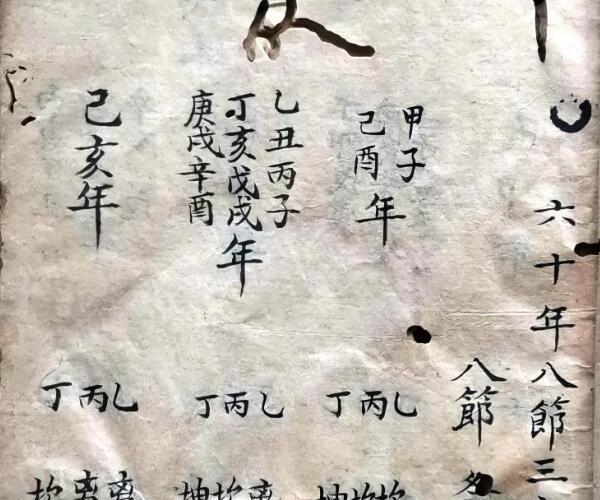 六十年八節三
八節
甲子
己酉
年
乙丙丁
乙丑丙子
丁亥戊戌年
庚戌辛酉
乙丙丁
己亥年
乙丙丁